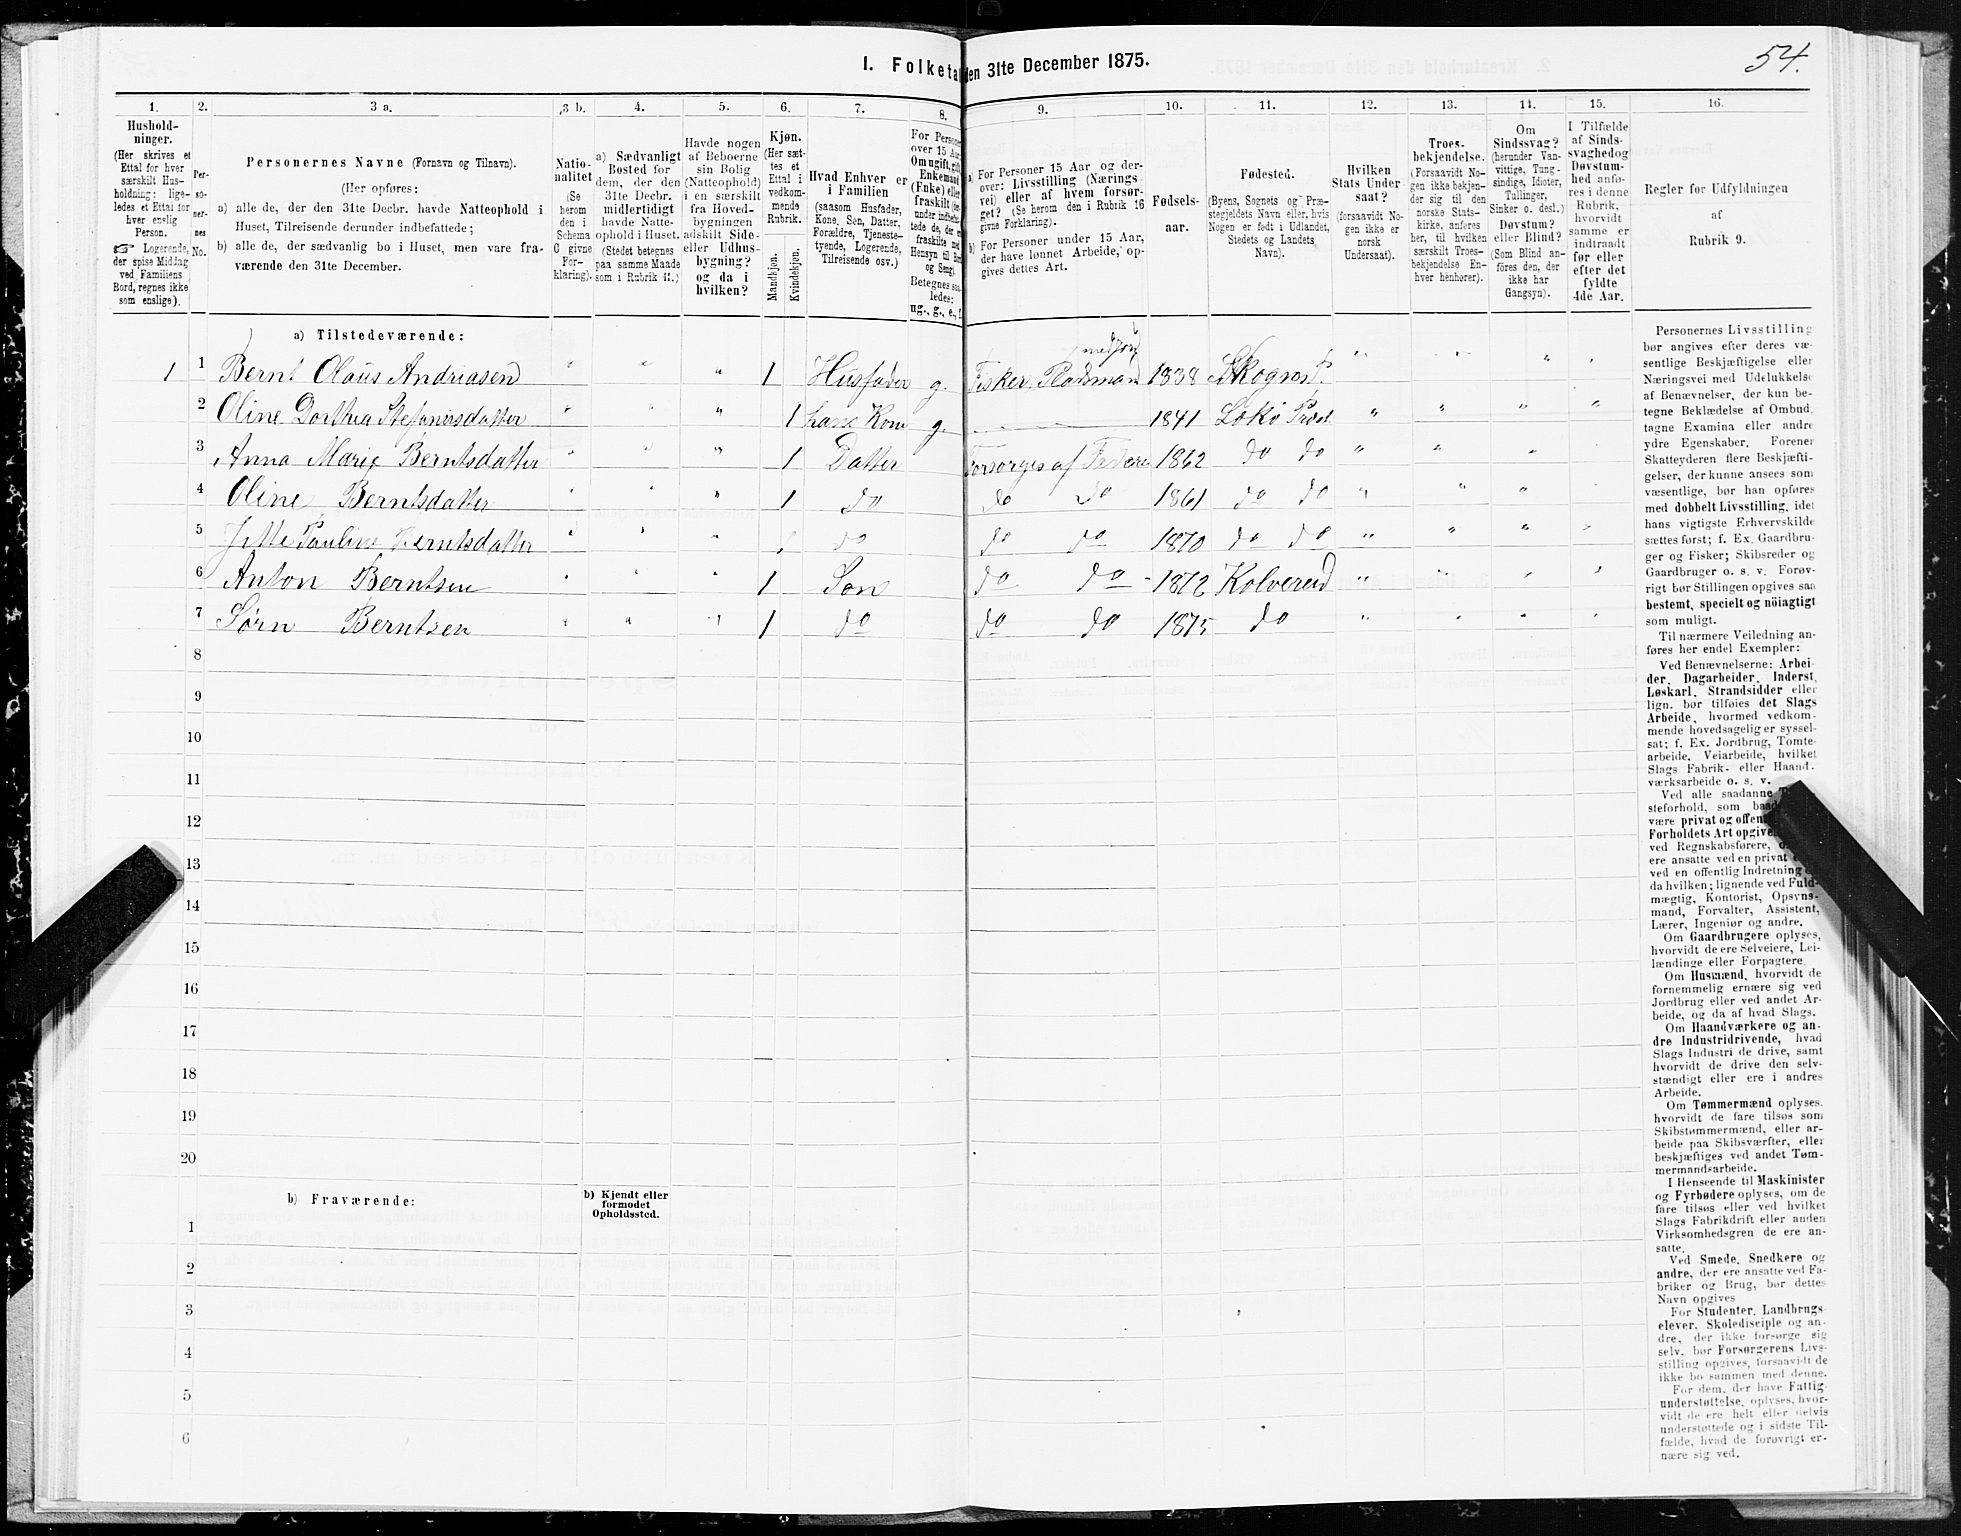 54.
I. Folketal den 31te December 1875.
1. 2. 3 a. 3 b. 4. 5. 6. 7. 8. 9. 10. 11. 12. 13. 14. 15. 16.
Hushold-
ninger.
(Her skrives et
Ettal for hver
særskilt Hus-
holdning; lige-
ledes et Ettal for
hver enslig
Person.
☞ Logerende,
der spise Middag
ved Familiens
Bord, regnes ikke
som enslige).
Per-
so-
ner-
nes
No.
Personernes Navne (Fornavn og Tilnavn).
(Her opføres:
a) alle de, der den 31te Decbr. havde Natteophold i
Huset, Tilreisende derunder indbefattede;
b) alle de, der sædvanlig bo i Huset, men vare fra-
værende den 31te December.
Natio-
nalitet
(Se
herom
den i
Schema
C givne
For-
klaring).
a) Sædvanligt
Bosted for
dem, der den
31te Decbr.
midlertidigt
havde Natte-
ophold i Huset.
(Stedet betegnes
paa samme Maade
som i Rubrik 11.)
Havde nogen
af Beboerne
sin Bolig
(Natteophold)
i en særskilt
fra Hoved-
bygningen
adskilt Side-
eller Udhus-
bygning?
og da i
hvilken?
Kjøn.
(Her sæt-
tes et
Ettal i
vedkom-
mende
Rubrik.
Mandkjøn.
Kvindekjøn.
Hvad Enhver er
i Familien
(saasom Husfader,
Kone, Søn, Datter,
Forældre, Tjeneste-
tyende, Logerende,
Tilreisende osv.)
For Personer
over 15 Aar:
Om ugift, gift,
Enkemand
(Enke) eller
fraskilt
Betegnes saa-
ledes:
ug., g., e., f.
a) For Personer 15 Aar og der-
over: Livsstilling (Nærings-
vei) eller af hvem forsør-
get? (Se herom den i Rubrik 16
givne Forklaring).
b) For Personer under 15 Aar,
der have lønnet Arbeide, op-
gives dettes Art.
Fødsels-
aar.
Fødested.
(Byens, Sognets og Præ-
stegjeldets Navn eller, hvis
Nogen er født i Udlandet,
Stedets og Landets
Navn).
Hvilken
Stats Under-
saat?
(forsaavidt No-
gen ikke er
norsk
Undersaat).
Troes-
bekjendelse.
(Forsaavidt No-
gen ikke bekjen-
der sig til den
norske Stats-
kirke, anføres
her, til hvilken
særskilt Troes-
bekjendelse En-
hver henhører).
Om
Sindssvag?
(herunder Van-
vittige, Tung-
sindige, Idioter,
Tullinger,
Sinker o. desl.)
Døvstum?
eller Blind?
(Som Blind an-
føres den, der
ikke har
Gangsyn).
I Tilfælde
af Sinds-
svaghed og
Døvstum-
hed anfø-
res i denne
Rubrik,
hvorvidt
samme er
indtraadt
før eller
efter det
fyldte
4de Aar.
Regler for Udfyldningen
af
Rubrik 9.
a) Tilstedeværende:
1 1 Bernt Olaus Andriasen " " " 1 Husfader g. Fisker, Pladsmand medjord 1838 Skogn P. " " " "
2 Oline Dorthea Stefanusdatter " " " 1 hans Kone g. 1841 Lekø Præst " " " "
3 Anna Marie Berntsdatter " " " 1 Datter Forsørges af Faderen 1862 do do " " "
4 Oline Berntsdatter " " " 1 do do do 1861 do do " " "
5 Jette Pauline Berntsdatter " " " 1 do do do 1870 do do " " " "
6 Anton Berntsen " " " 1 Søn do do 1872 Kolvereid " " " "
7 Sørn Berntsen " " " 1 do do do 1875 do " " " "
8
9
10
11
12
13
14
15
16
17
18
19
20
b) Fraværende:
b) Kjendt eller
formodet
Opholdssted.
1
2
3
4
5
6
Personernes Livsstilling
bør angives efter deres væ-
sentlige Beskjæftigelse eller
Næringsvei med Udelukkelse
af Benævnelser, der kun be-
tegne Beklædelse af Ombud,
tagne Examina eller andre
ydre Egenskaber. Forener
Skatteyderen flere Beskjæfti-
gelser, der kunne ansees som
væsentlige, bør han opføres
med dobbelt Livsstilling, idet
hans vigtigste Erhvervskilde
sættes først; f. Ex. Gaardbru-
ger og Fisker; Skibsreder og
Gaardbruger o. s. v. Forøv-
rigt bør Stillingen opgives saa
bestemt, specielt og nöiagtigt
som muligt.
Til nærmere Veiledning an-
føres her endel Exempler:
Ved Benævnelserne: Arbei-
der, Dagarbeider, Inderst,
Løskarl, Strandsidder eller
lign. bør tilføies det Slags
Arbeide, hvormed vedkom-
mende hovedsagelig er syssel-
sat; f. Ex. Jordbrug, Tomte-
arbeide, Veiarbeide, hvilket
Slags Fabrik- eller Haand-
værksarbeide o. s. v.
Ved alle saadanne
steforhold, som
være privat og
Forholdets Art
ved Regnskabsførere,
ere ansatte ved en privat
ved en offentlig Indretning
da hvilken; lignende ved Fuld-
mægtig, Kontorist, Opsyns-
mand, Forvalter, Assistent,
Lærer, Ingeniør og andre.
Om Gaardbrugere oplyses,
hvorvidt de ere Selveiere, Lei-
lændinge eller Forpagtere.
Om Husmænd, hvorvidt de
fornemmelig ernære sig ved
Jordbrug eller ved andet Ar-
beide, og da af hvad Slags.
Om Haandværkere og an-
dre Industridrivende, hvad
Slags Industri de drive, samt
hvorvidt de drive den selv-
stændigt eller ere i andres
Arbeide.
Om Tømmermænd oplyses,
hvorvidt de fare tilsøs som
Skibstømmermænd, eller ar-
beide paa Skibsværfter, eller
beskjæftiges ved andet Tøm-
mermandsarbeide.
I Henseende til Maskinister
og Fyrbødere oplyses, om de
fare tilsøs eller ved hvilket
Slags Fabrikdrift eller anden
Virksomhedsgren de ere an-
satte.
Ved Smede, Snedkere og
andre, der ere ansatte ved Fa-
briker og Brug, bør dettes
Navn opgives
For Studenter, Landbrugs-
elever, Skoledisciple og an-
dre, der ikke forsørge sig
selv, bør Forsørgerens Livs-
stilling opgives, forsaavidt de
ikke bo sammen med denne.
For dem, der have Fattig-
understøttelse, oplyses, hvor-
vidt de ere helt eller delvis
understøttede og i sidste Til-
fælde, hvad de forøvrigt er-
nære sig ved.